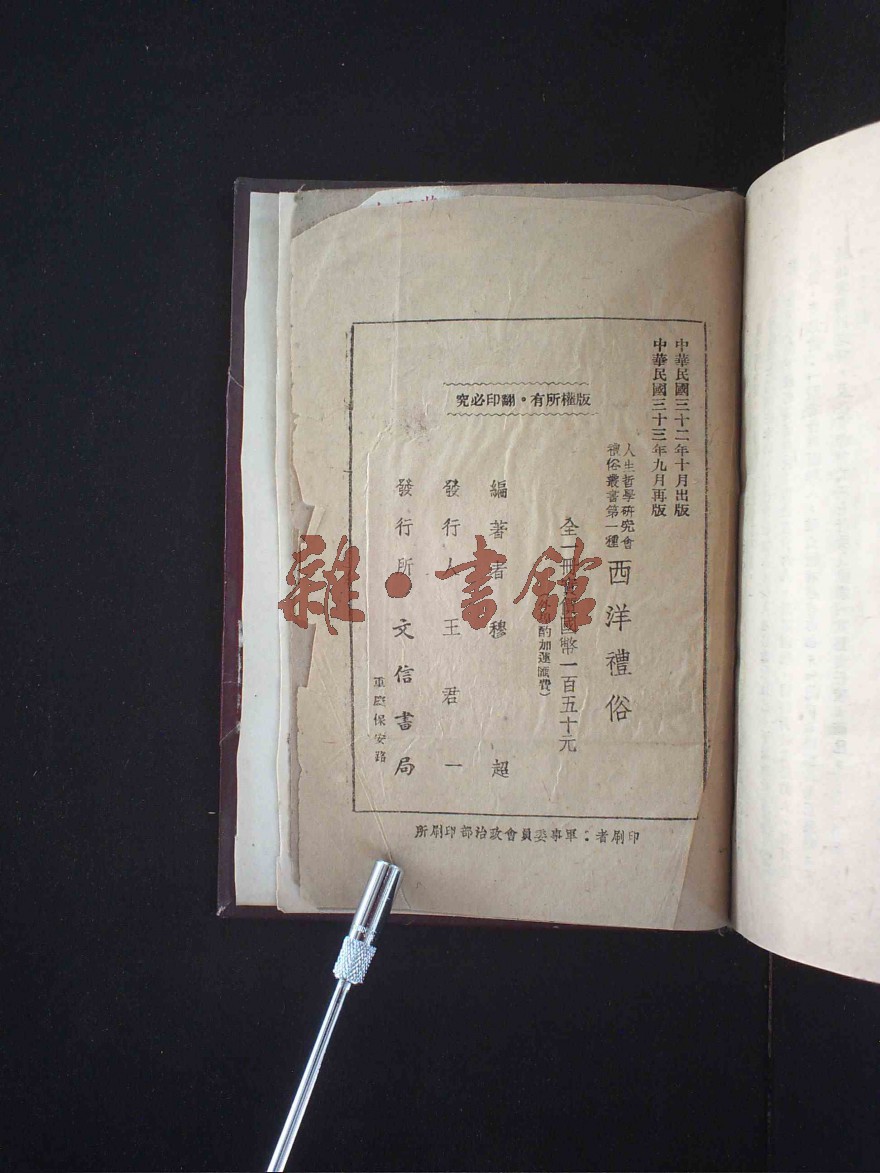 中華民國三十二年十月出版
中華民國三十三年九月再版
人生哲學研究會
禮俗叢書第一種
西洋禮俗
全一冊實價國幣一百五十元
酌加運匯費）
版權所有。翻印必究
編著者 穆超
發行人 王君一
發行所 文信書局
重慶保安路
印刷者：軍事委員會政治部印刷所
雜·書館